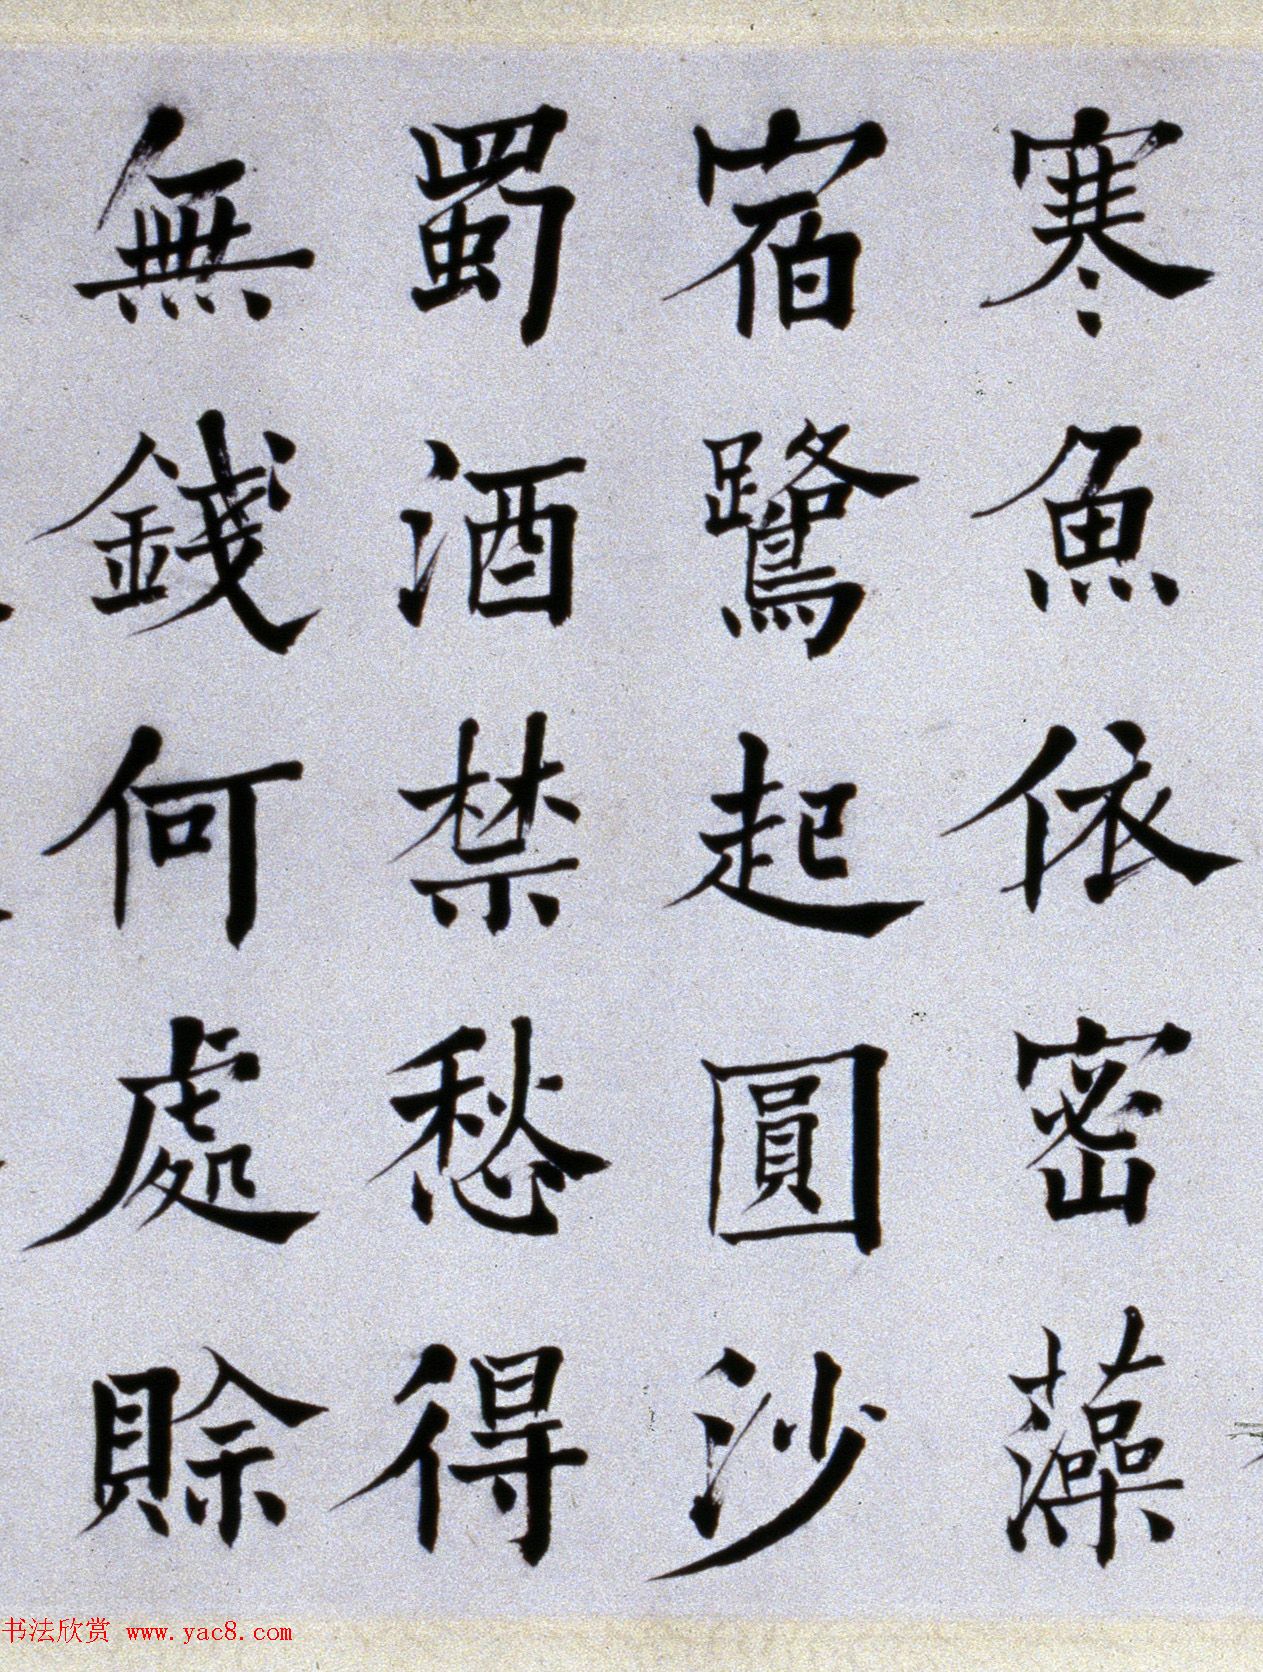 寒魚依密藻
宿鷺起圓沙
蜀酒禁愁得
無錢何處賖
书法欣赏 www.yac8.com